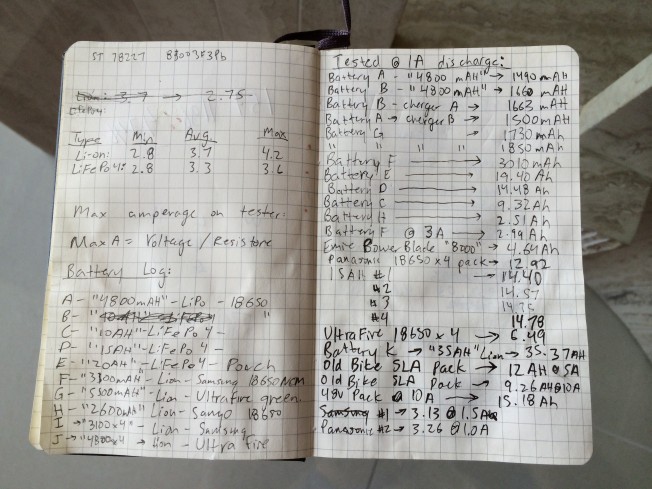 ST 78227 83003F3Pb
Lion: 3.7 → 2.75
Type Min Avg. Max
Li-on: 2.8 3.7 4.2
LiFePo4: 2.8 3.3 3.6
Max amperage on tester:
Max A = Voltage / Resistore
Battery Log:
A- "4800mAH" - LiPo - 18650
B- "
C- "10AH" - LiFePo4 -
D- "15AH" - LiFePo4 -
E- "20AH" - LiFePo4 - Pouch
F- "3100mAH - Lion - Samsung 18650
G- "5500mAH - Lion - Ultrafire green
H- "2600mAH" Lion - Sanyo 18650
I → "3100x4" - Lion - Samsung
J → "4800x4 → Lion - UltraFire
Tested @ 1A discharge:
Battery A - "4800 mAH" → 1490 mAH
Battery B - "4800 mAH" → 1660 mAH
Battery B - charger A → 1663 mAH
Battery A → charger B → 1500mAH
Battery G → 1730 mAh
" " " " 1850 mAh
Battery F → 3010mAh
Battery E → 19.40 Ah
Battery D → 14.48 Ah
Battery C → 9.32Ah
Battery H → 2.51Ah
Battery F @ 3A → 2.99Ah
Power Blade "8000" → 4.64Ah
Panasonic 18650 x4 pack → 12.92
15AH #1 → 14.40
#2 14.57
#3 14.75
#4 14.78
UltraFire 18650 x 4 → 6.49
Battery K → "35AH" Lion → 35.37AH
Old Bike SLA Pack → 12 AH @ 5A
Old Bike SLA Pack → 9.26A @10A
48v Pack @ 10A → 15.18 Ah
Samsung #1 → 3.13 @ 1.5A
Panasonic #2 → 3.26 @1.0A